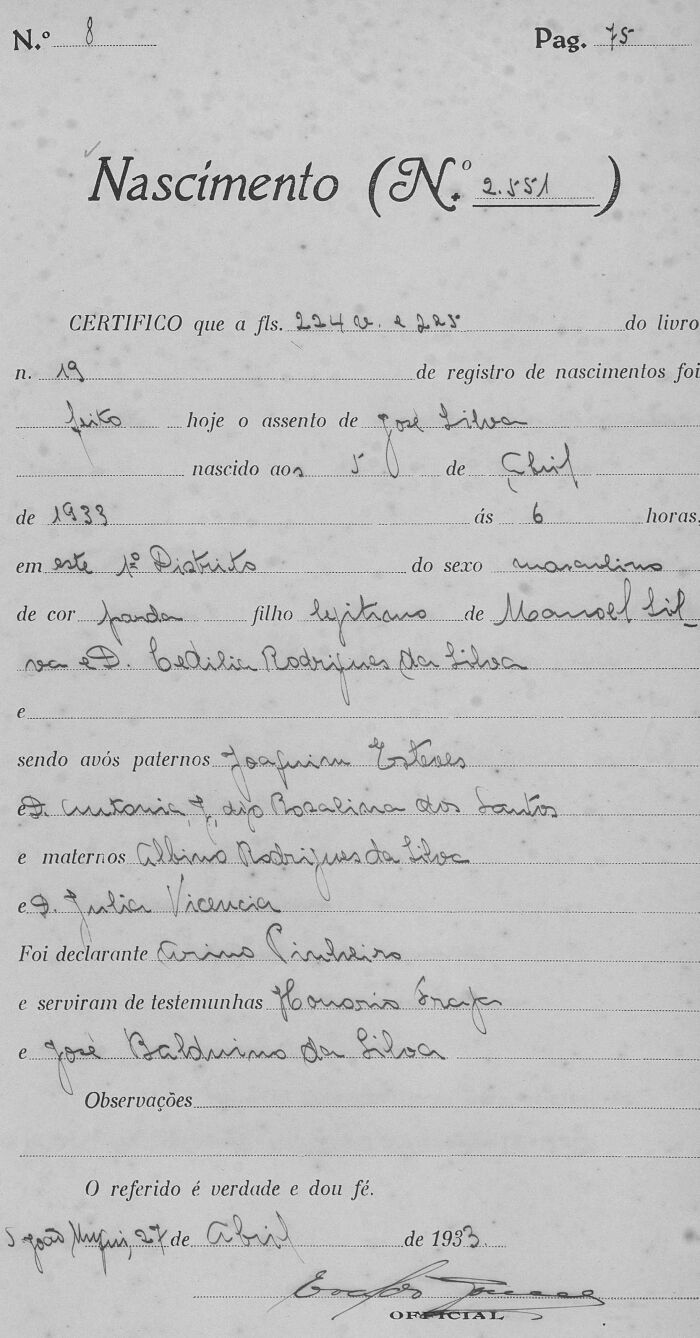 N.º 8 Pag. 75
Nascimento (N.º 2.551)
CERTIFICO que a fls. 224 v. e 225 do livro
n. 19 de registro de nascimentos foi
feito hoje o assento de José Silva
nascido aos 5 de Abril
de 1933 ás 6 horas,
em este 1º Distrito do sexo masculino
de cor parda filho legitimo de Manoel Sil-
va e D. Cedilia Rodrigues da Silva
e
sendo avós paternos Joaquim Esteves
e D. Antonia, digo Rosalina dos Santos
e maternos Albino Rodrigues da Silva
e D. Julia Vicencia
Foi declarante Arino Pinheiro
e serviram de testemunhas Honorio
e José Balduino da Silva
Observações
O referido é verdade e dou fé.
S. João 27 de Abril de 1933.
OFFICIAL